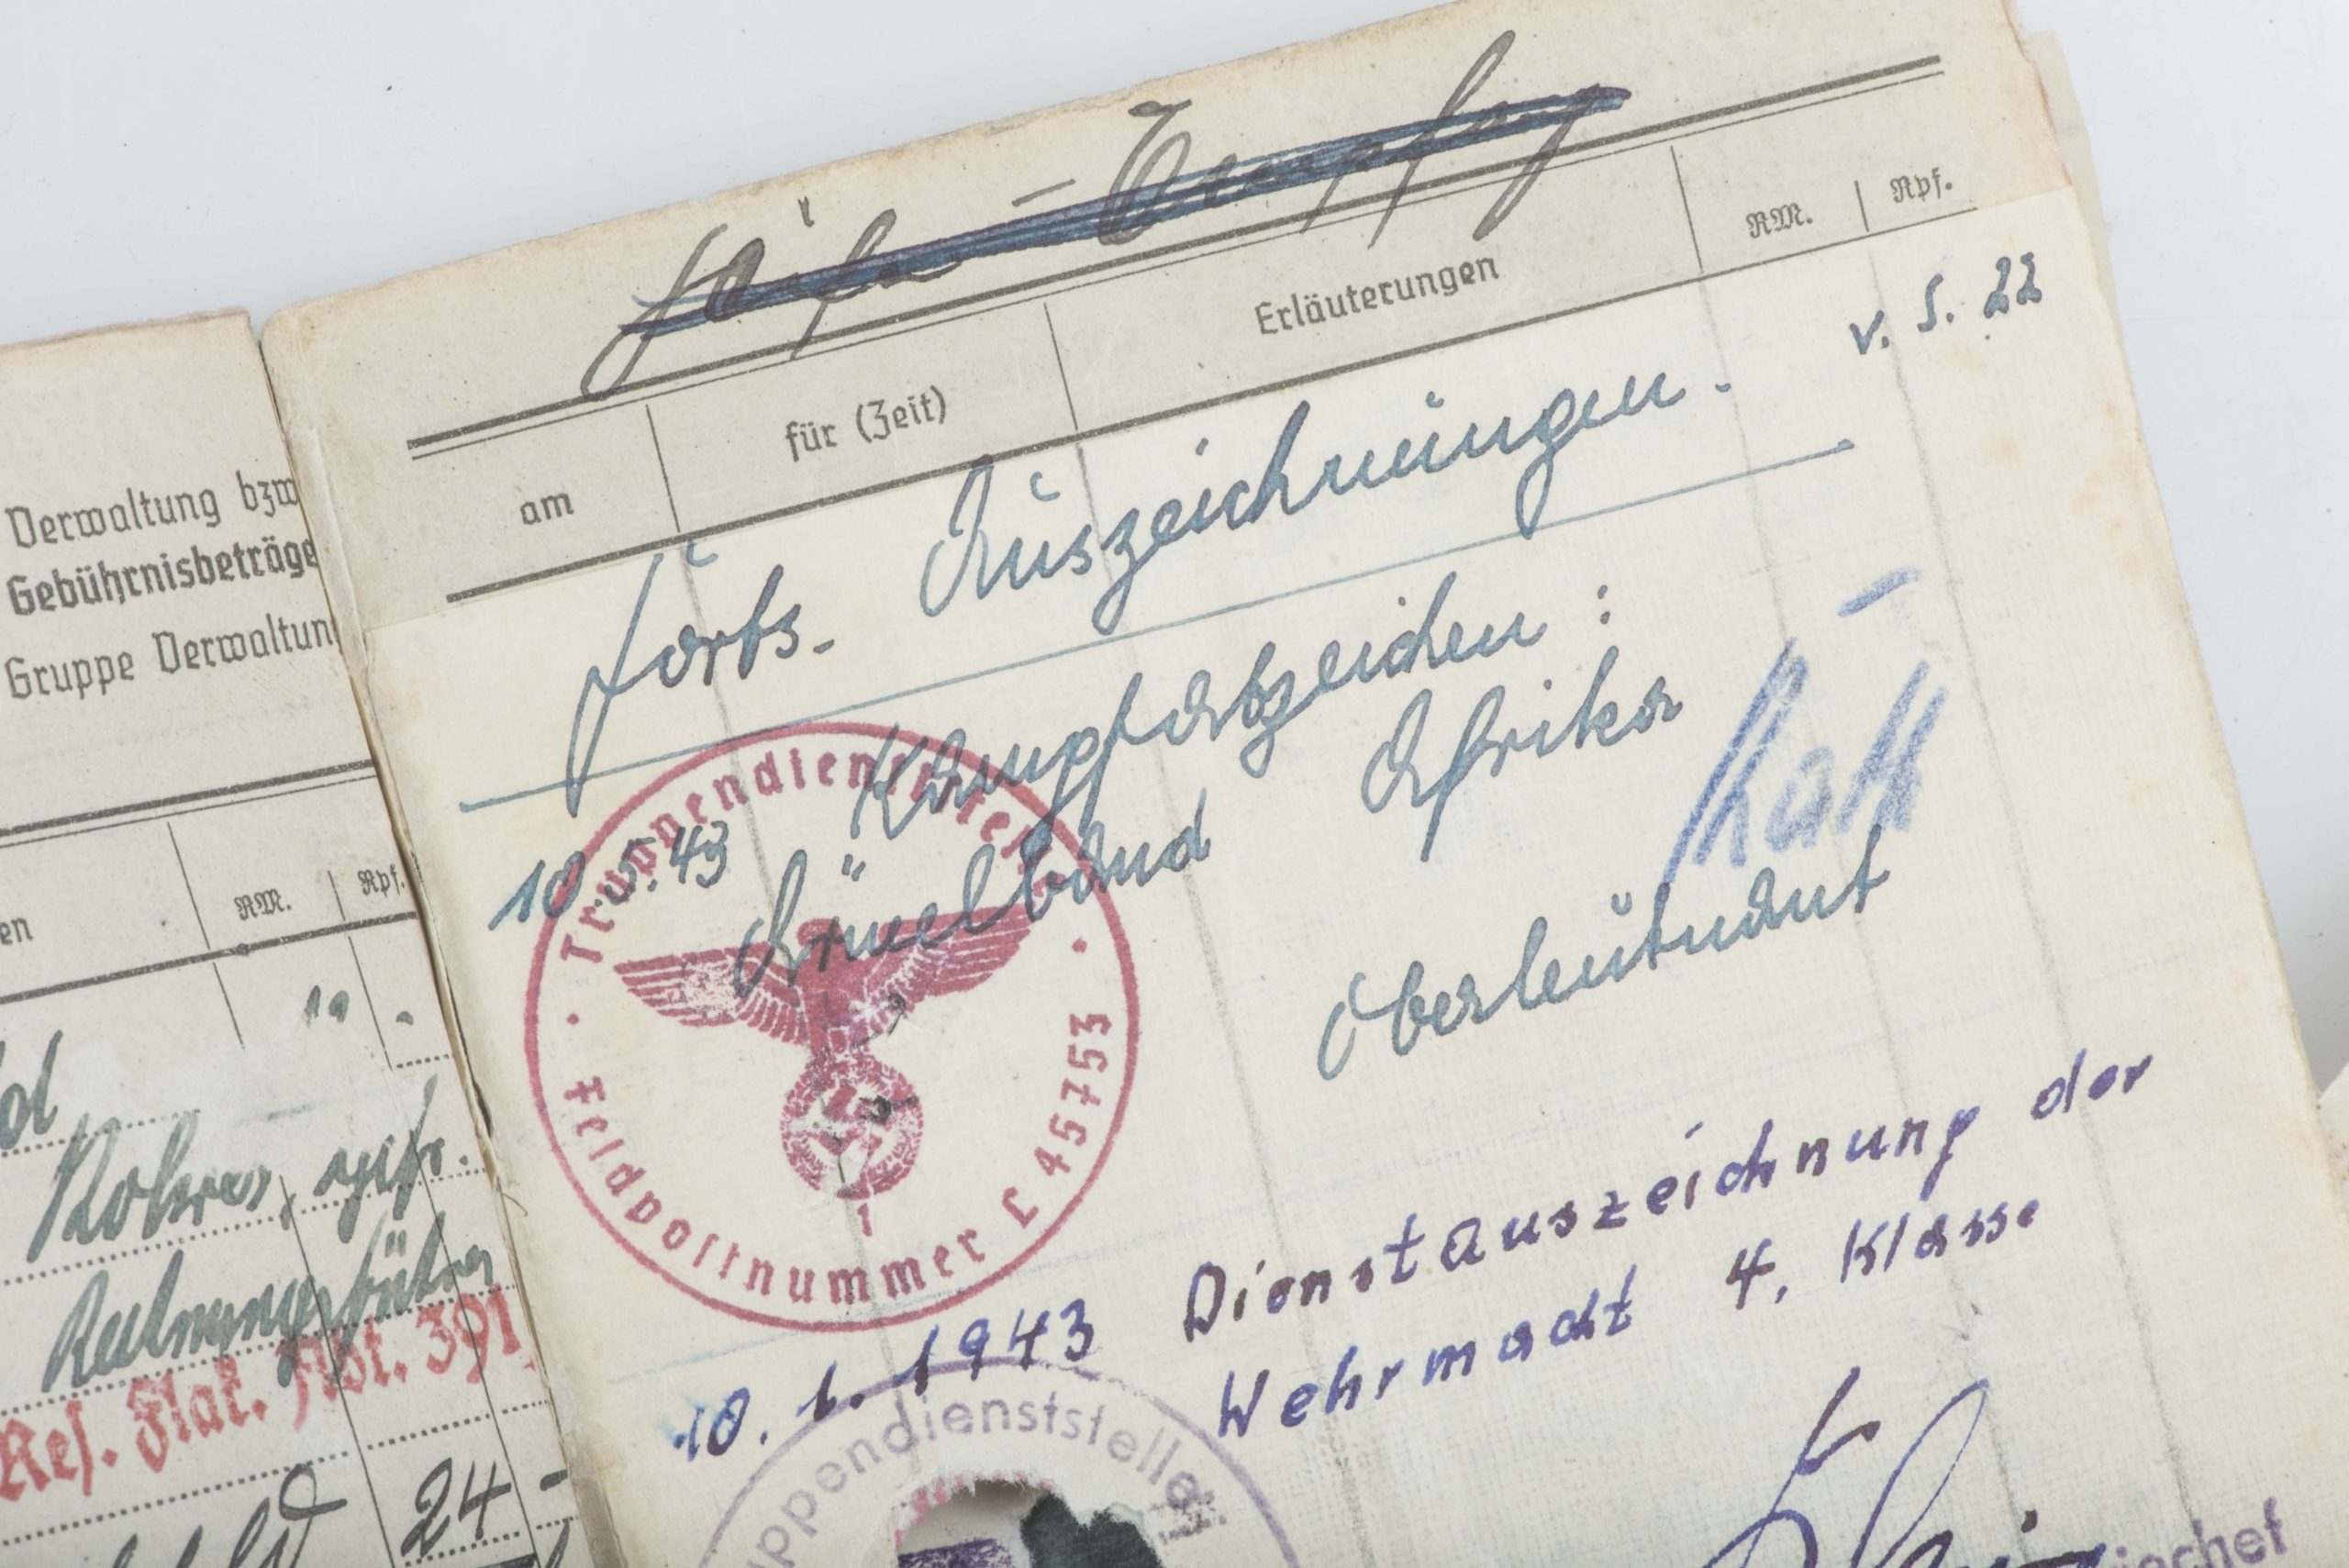 Verwaltung bzw
Gebührnisbeträge
Gruppe Verwaltun
en RM. Rpf.
d
Rohrer, Uffz.
Rechnungsführer
Res. Flak. Abt. 391
24 -
Seife - Empfang
am für (Zeit) Erläuterungen RM. Rpf.
v. S. 22
Forts. Auszeichnungen.
Kampfabzeichen:
10.5.43 Ärmelband Afrika
Oberleutnant
Truppendienststelle
Feldpostnummer L 45753
1
10. 6. 1943 Dienstauszeichnung der
Wehrmacht 4. Klasse
uppendienststelle
chef